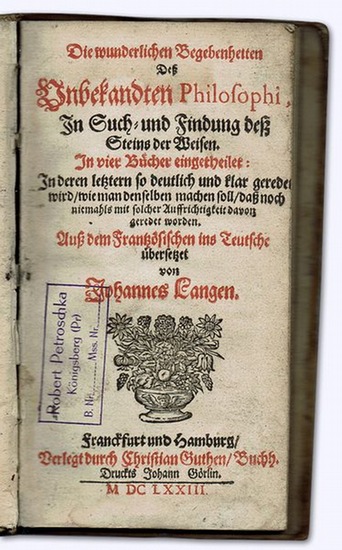 Die wunderlichen Begebenheiten
Deß
Unbekandten Philosophi,
In Such- und Findung deß
Steins der Weisen.
In vier Bücher eingetheilet:
In deren letztern so deutlich und klar geredet
wird/wie man denselben machen soll/daß noch
niemahls mit solcher Auffrichtigkeit davon
geredet worden.
Auß dem Frantzösischen ins Teutsche
übersetzet
von
Johannes Langen.
Robert Petroschka
Königsberg (Pr)
B. Nr. Mss. Nr.
Franckfurt und Hamburg/
Verlegt durch Christian Guthen/Buchh.
Druckts Johann Görlin.
M DC LXXIII.